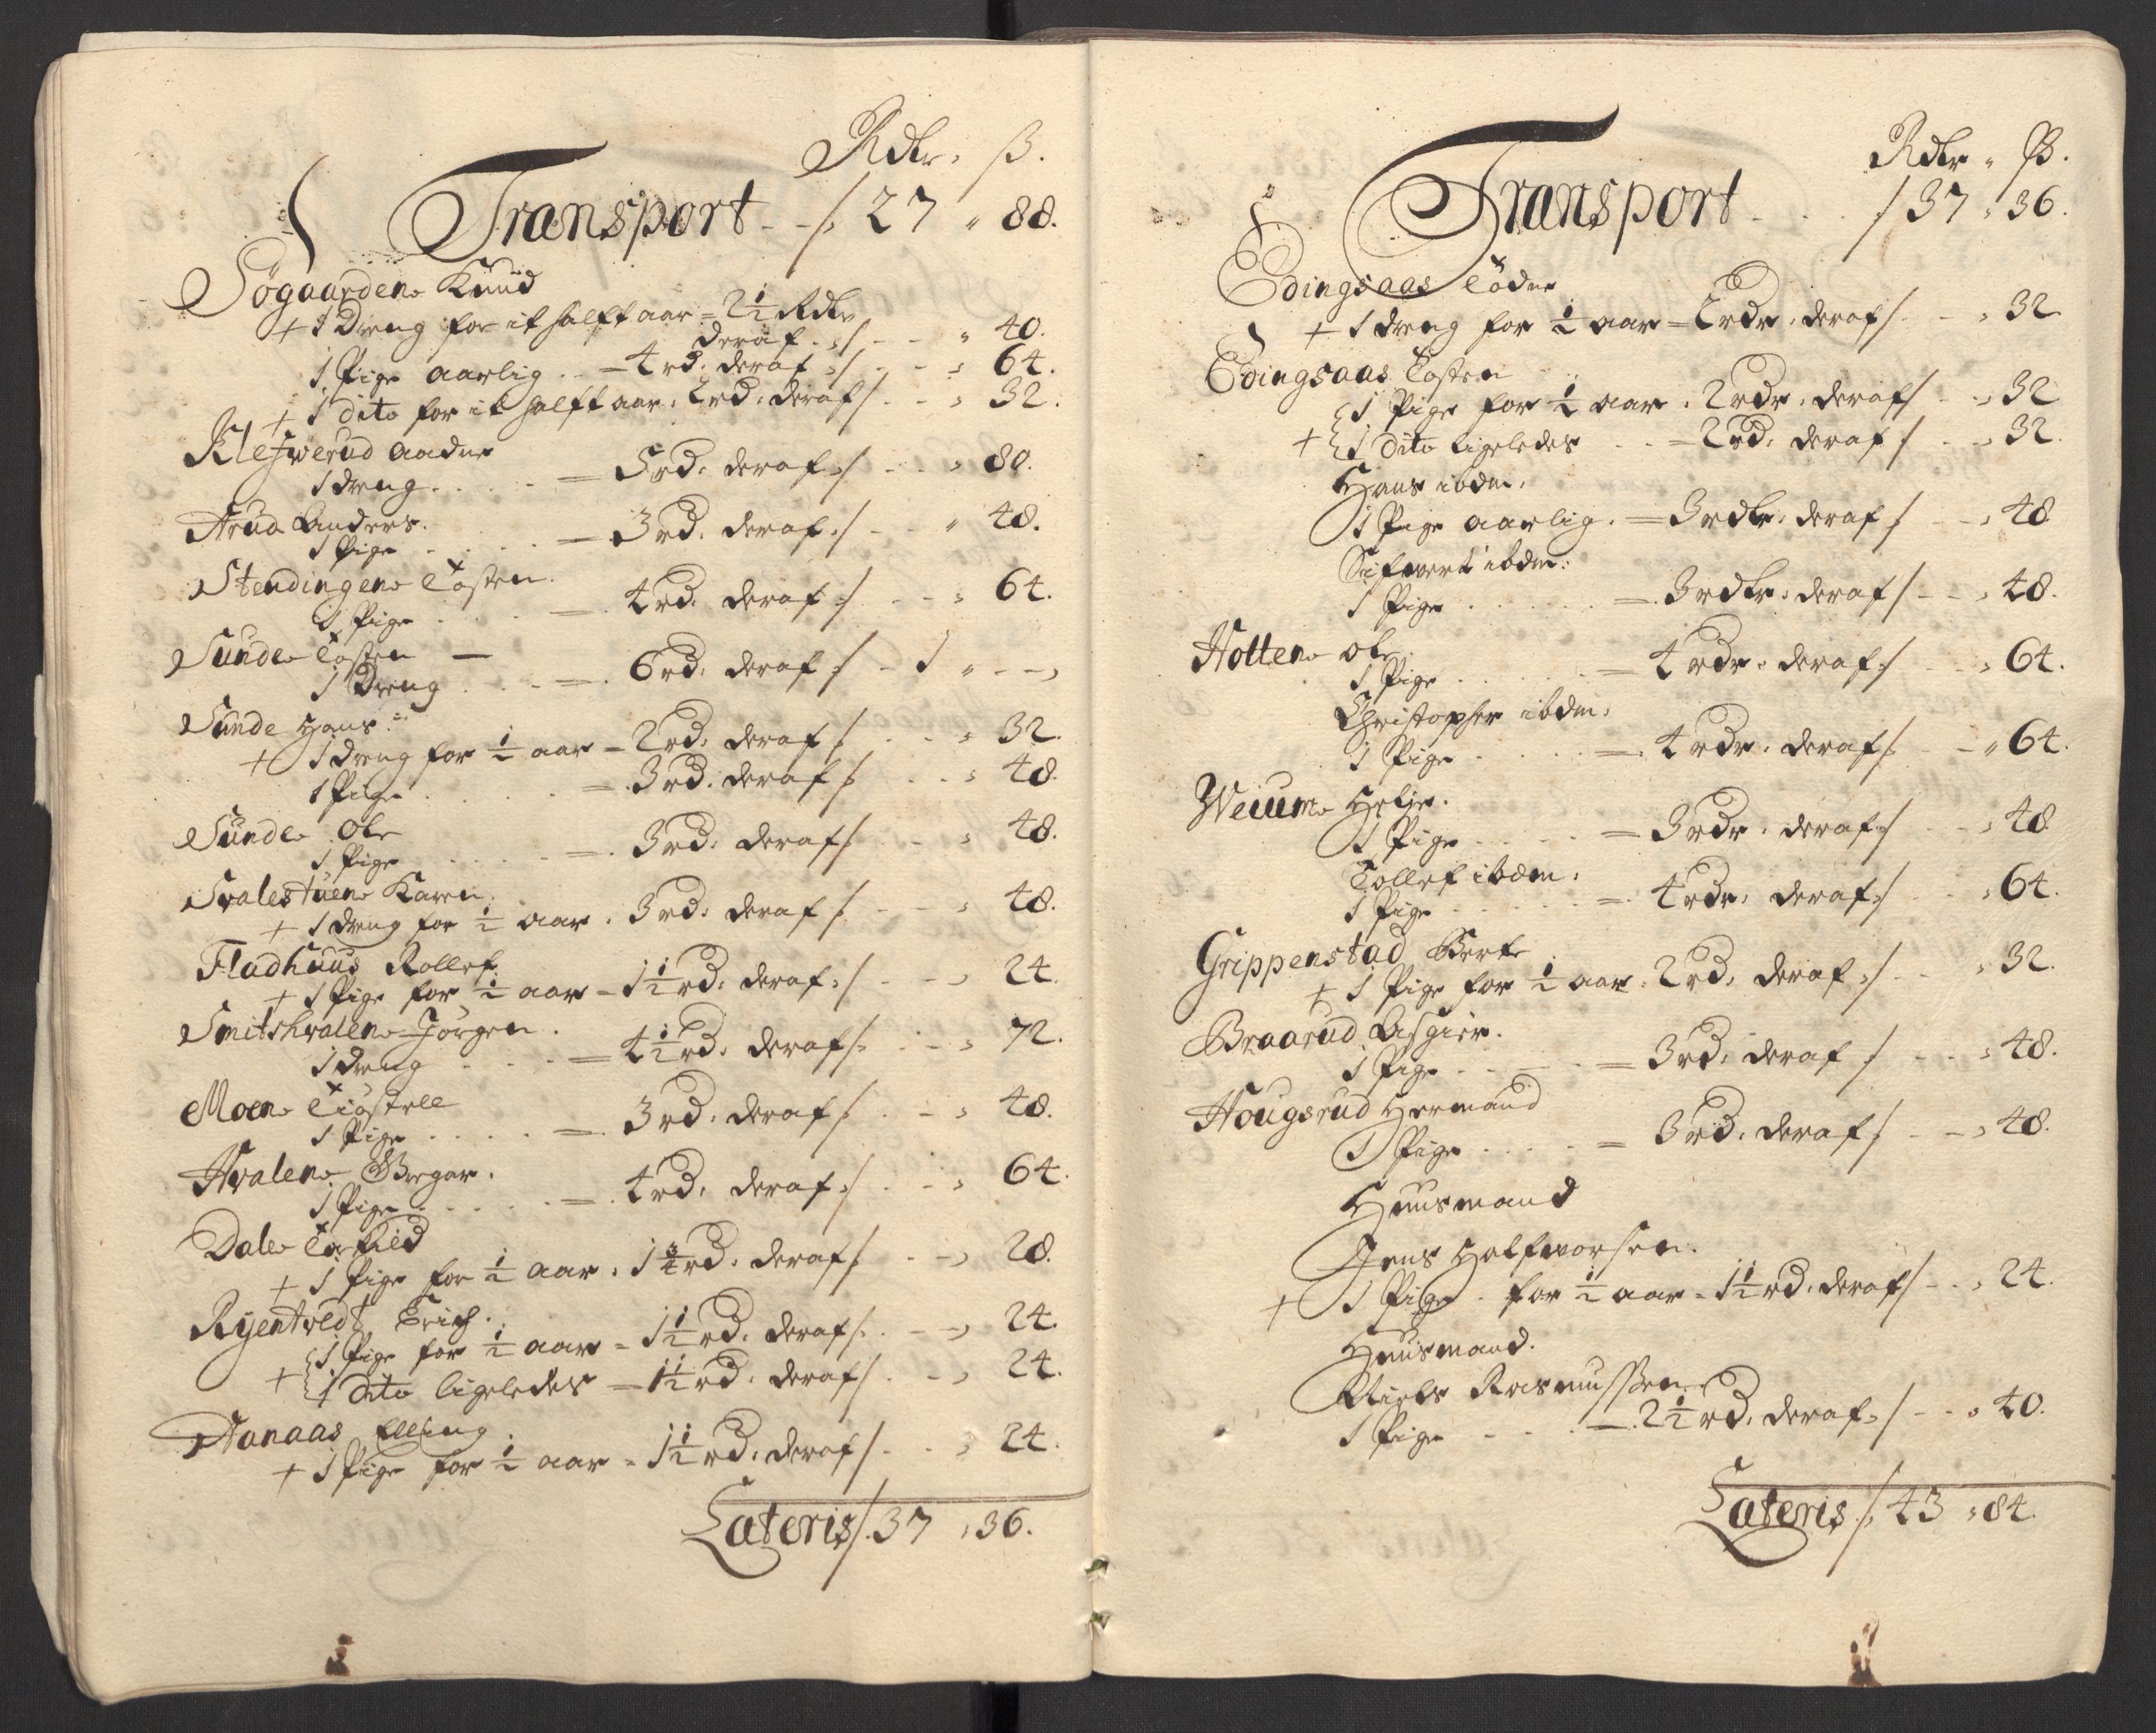 Rdlr. ß.
Transport - - /: 27 " 88.
Søgaarden Knud
+ 1 Dreng for it halfft aar = 2½ Rdlr
deraf :/ - - " 40.
1 Pige aarlig - = 4 rd: deraf :/ - - " 64.
+ 1 dito for it halfft aar. 2 rd: deraf / - - " 32.
Aadne
1 dreng = 5 rd: deraf :/ - - " 80.
Arud Anders.
1 Pige = 3 rd: deraf :/ - - " 48.
Stendingen Tosten.
1 Pige = 4 rd: deraf :/ - - " 64.
Sunde Tosten —
1 Dreng = 6 rd: deraf :/ - 1 " - -
Sunde Hans:
+ 1 dreng for ½ aar = 2 rd: deraf /: - - " 32.
1 Pige = 3 rd: deraf /: - - " 48
Sunde Ole
1 Pige = 3 rd: deraf /: - - " 48.
Svalestuen Karen.
+ 1 dreng for ½ aar. 3 rd: deraf /: - - " 48.
Fladhuus Rollef.
+ 1 Pige for ½ aar = 1½ rd: deraf :/ - - " 24.
Smitshvalen Jørgen.
1 dreng = 4½ rd: deraf /: - - " 72.
Moen Tiøstell
1 Pige = 3 rd: deraf /: - - " 48.
Hvalen Bregar.
1 Pige = 4 rd: deraf :/ - - " 64.
Dale Tarkild
+ 1 Pige for ½ aar. 1¾ rd: deraf /: - - " 28.
Ryentvedt Erich.
1 Pige for ½ aar = 1½ rd: deraf /: - - " 24.
+ 1 dito ligeledes = 1½ rd: deraf /. - - " 24.
Aanaas Elling.
+ 1 Pige for ½ aar = 1½ rd: deraf / - - " 24.
Lateris /. 37 " 36.
Rdlr " ß.
Transport - - - / 37 " 36.
Edingsaas Todne
+ 1 dreng for ½ aar = 2 rdr. deraf / - - " 32
Edingsaas Tosten
1 Pige for ½ aar. 2 rdr. deraf / - - " 32
+ 1 dito ligeledes - - = 2 rd: deraf / - - " 32.
Hans ibdm.
1 Pige aarlig. = 3 rdlr. deraf / - - " 48
Sifwert ibdm:
1 Pige = 3 rdlr: deraf / - - " 48.
Holten Ole.
1 Pige = 4 rdr. deraf :/ - - " 64.
Christopher ibdm:
1 Pige = 4 rdr. deraf /: - - " 64.
Weium Helje.
1 Pige = 3 rdr. deraf :/ - - " 48
Tollef ibdm:
1 Pige = 4 rdr. deraf :/ - - " 64.
Grippenstad Berte
+ 1 Pige for ½ aar. 2 rd: deraf :/ - - " 32.
Braarud Asgier.
1 Pige = 3 rd: deraf / - - " 48.
Hougsrud Hermand
1 Pige = 3 rd. deraf / - - " 48.
Huusmand
Jens Halfworsen.
+ 1 Pige. for ½ aar = 1½ rd. deraf / - - " 24.
Huusmand.
Niels Rasmussen
1 Pige - - = 2½ rd. deraf :/ - - " 40.
Lateris /: 43 " 84.